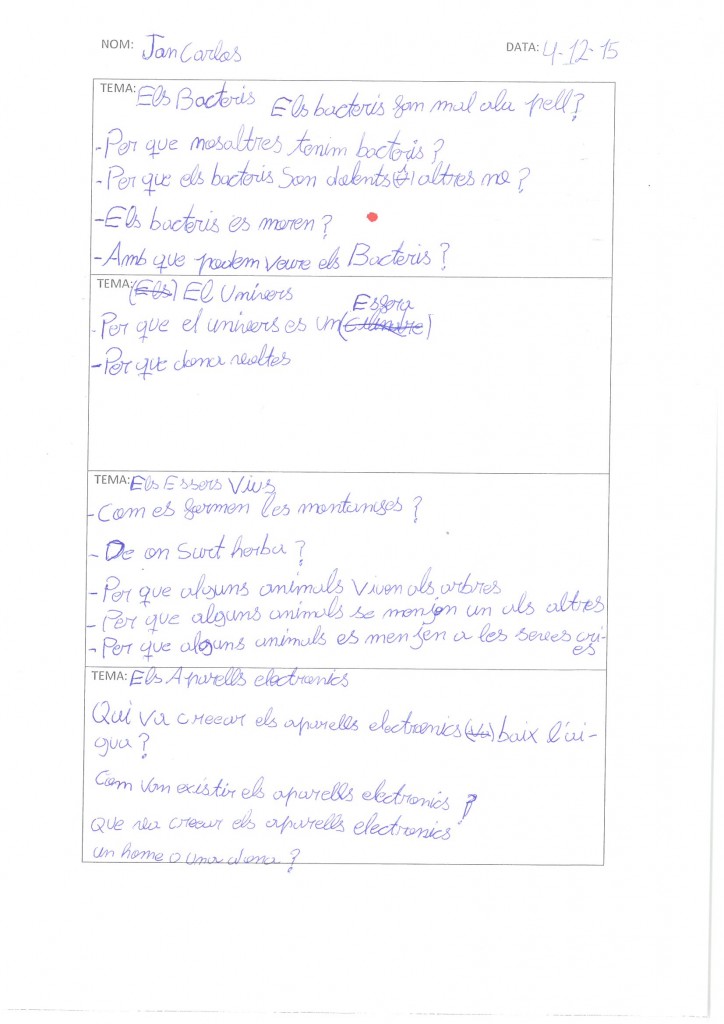 NOM: Jan Carlos DATA: 4-12-15
TEMA: Els Bacteris Els bacteris fan mal ala pell?
-Per que nosaltres tenim bacteris?
-Per que els bacteris Son dolents (i) altres no?
-Els bacteris es moren?
-Amb que podem veure els Bacteris?
TEMA: (Els) El Univers
Esfera
-Per que el univers es un (Cilindre)
-Per que dona voltes
TEMA: Els Essers Vius
-Com es formen les montanyes?
-De on Surt herba?
-Per que alguns animals Viven als arbres
-Per que alguns animals se menjen un als altres
-Per que alguns animals es menjen a les seves cri-
es
TEMA: Els Aparells electronics
Qui va creear els aparells electronics (Va) baix l'ai-
gua?
Com van existir els aparells electronics?
Que va creear els aparells electronics
un home o una dona?